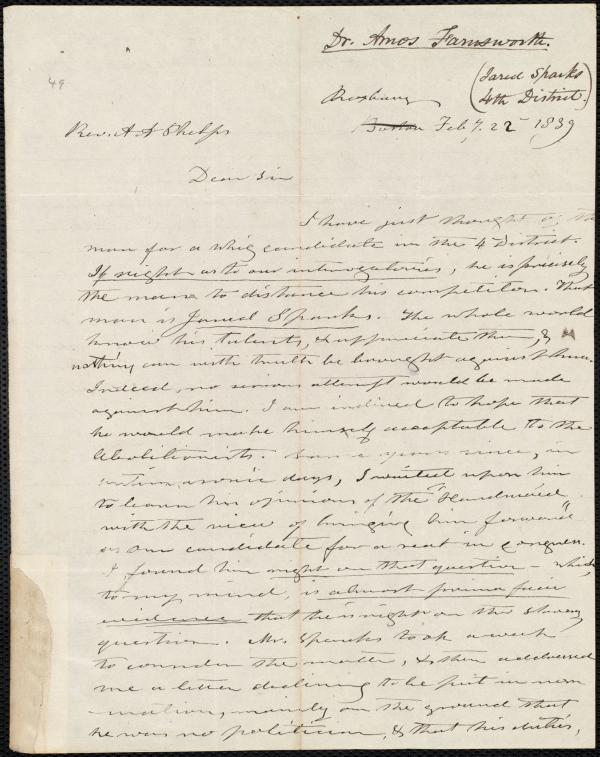 Dr. Amos Farnsworth.
(Jared Sparks
4th District.)
49
Roxbury
Boston Feby. 22 1839
Rev. A A Phelps
Dear Sir
I have just thought of the
man for a whig candidate in the 4 District.
If right as to our interogatories, he is precisely
the man to distance his competitor. That
man is Jared Sparks. The whole world
know his talents, & appreciate them, &
nothing can with truth be brought against him.
Indeed, no serious attempt would be made
against him. I am inclined to hope that
he would make himself acceptable to the
Abolitionists. Some years since, in
antimasonic days, I waited upon him
to learn his opinions of the "Handmaid"
with the view of bringing him forward
as our candidate for a seat in congress.
I found him right on that question – which,
to my mind, is almost prima facia
evidence that he is right on the Slavery
question. Mr. Sparks took a week
to consider the matter, & then addressed
me a letter declining to be put in nom
-ination, mainly on the ground that
he was no politician, & that his duties,